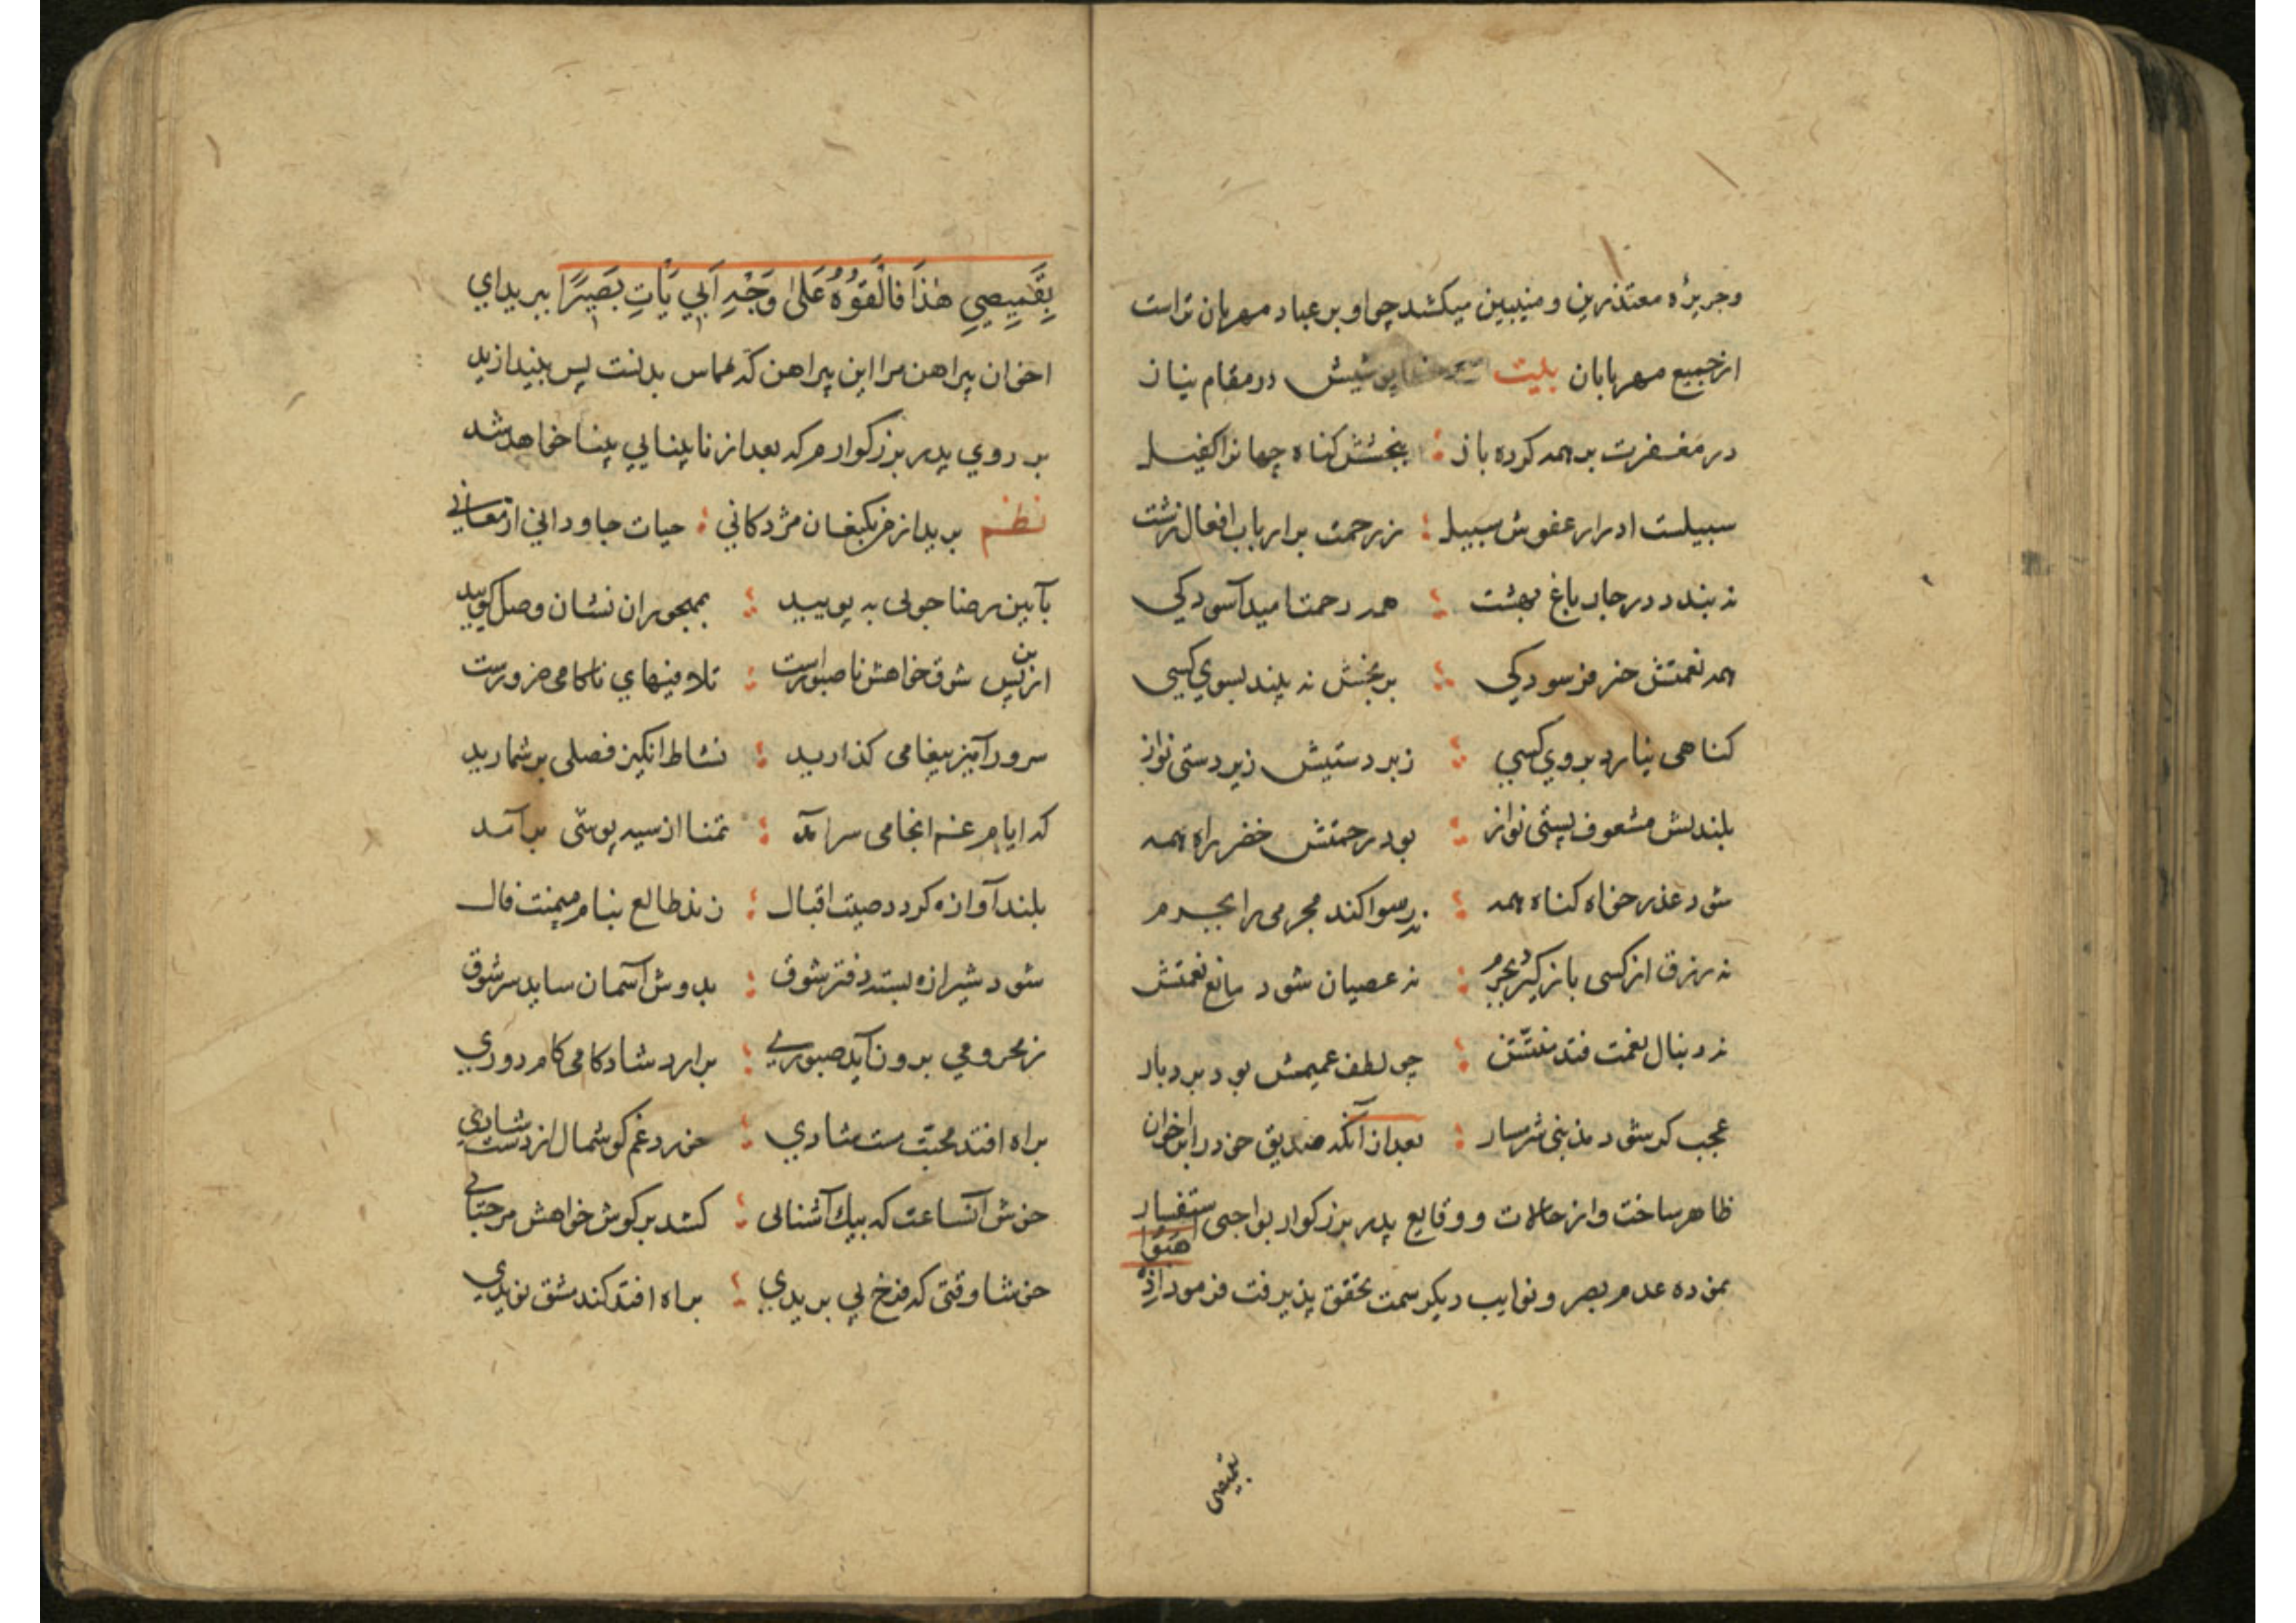 وجریزه معتذرین و منیبین میکشد چو او بر عباد مهربان تر است
از جمیع مهربانان بیت در مقام نیاز
در مغفرت بر همه کرده باز ؛ ببخشش کناه جهانرا کفیل
سبیلست ادرار عفوش سبیل ؛ ز رحمت بر ارباب افعال زشت
نه بندد در جار باغ بهشت ؛ همه رحمتا میدآسودکی
همه نعمتش خیر فرسودکی ؛ ببخشش نه بیند بسوی کسی
کناهی نیارد بروی کسی ؛ زبردستیش زیردستی نواز
بلندیش مشعوف پستی نواز ؛ بود رحمتش خضر راه همه
شود عذر خواه کناه همه ؛ نه رسوا کند مجرمی را بجرم
نه رزق از کسی باز کیرد بجرم ؛ نه عصیان شود مانع نعمتش
نه دنبال نعمت فتد منتش ؛ چو لطف عمیمش بود بردبار
عجب کر شود مذنبی شرمسار ؛ بعد از آنکه صدیق خود را بر اخوان
ظاهر ساخت و از حالات و وقایع پدر بزرکوار بواجبی استفسار
نموده عدم بصر و نوایب دیکر سمت تحقق پذیرفت فرمود اذهبوا
بقمیصی
بِقَمِيصِي هٰذَا فَالْقُوهُ عَلىٰ وَجْهِ اَبِي يَأْتِ بَصِيرًا ببرید ای
اخوان پیراهن مرا این پیراهن که مماس بدنست پس بیندازید
بر روی پدر بزرکوارم که بعد از نابینایی بینا خواهد شد
نظم برید از من بکنعان مژدکانی ؛ حیات جاودانی ارمغانی
بآیین رضا جویی به پویید ؛ بمهجوران نشان وصل کویید
ازین پس شوق خواهش ناصبورست ؛ تلافیهای ناکامی ضرورست
سرور آمیز پیغامی کذارید ؛ نشاط انکیز فصلی بر شمارید
که ایام غم انجامی سر آمد ؛ تمنا از سیه پوشی بر آمد
بلند آوازه کردد صیت اقبال ؛ زند طالع بنام میمنت فال
شود شیرازه بسته دفتر شوق ؛ بدوش آسمان ساید سر شوق
ز محرومی برون آید صبوری ؛ برارد شادکامی کام دوری
براه افتد محبت مست شادی ؛ خورد غم کوشمال از دست شادی
خوش آنساعت که پیک آشنائی ؛ کشد بر کوش خواهش مرحبائی
خوشا وقتی که فرخ پی بریدی ؛ براه افتد کند مشق نویدی